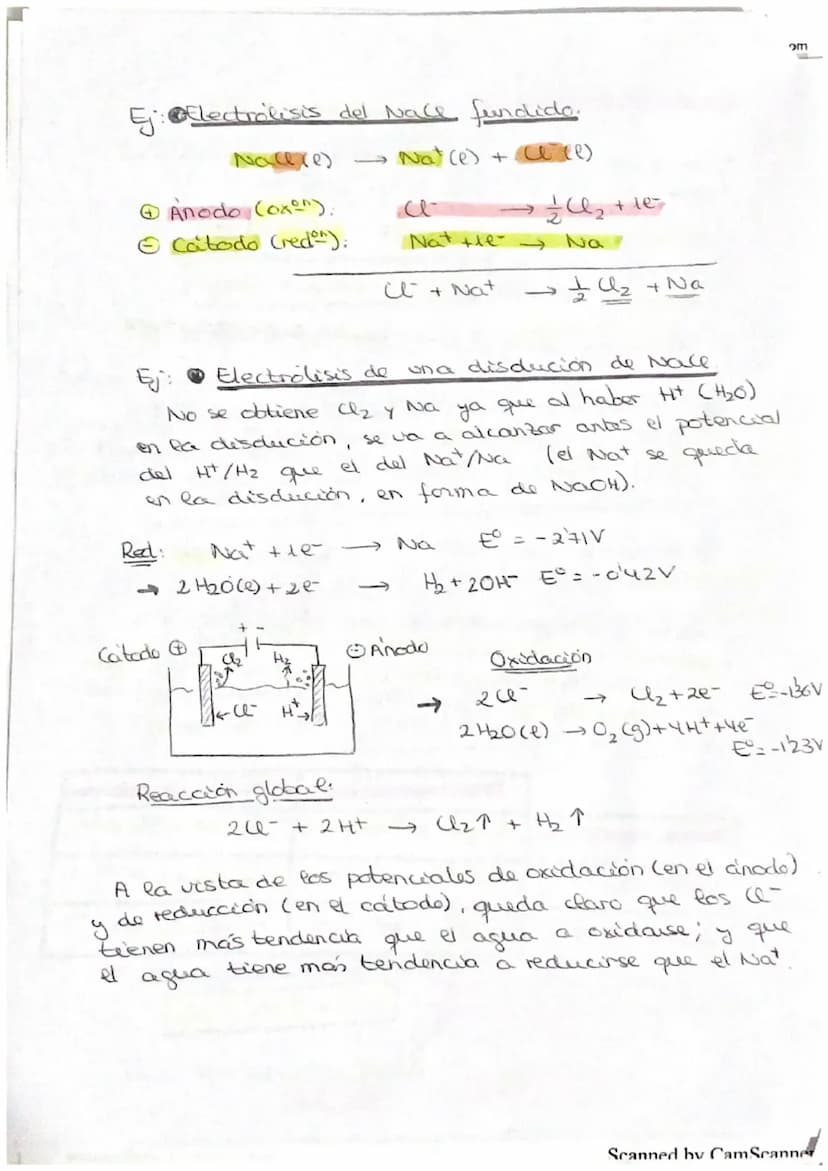 om
Ej: Electrólisis del NaCl fundido.
NaCl(l) → Na⁺(l) + Cl⁻(l)
⊕ Ánodo (oxºⁿ): Cl⁻ → 1/2 Cl₂ + 1e⁻
⊖ Cátodo (redºⁿ): Na⁺ + 1e⁻ → Na
Cl⁻ + Na⁺ → 1/2 Cl₂ + Na
Ej: Electrólisis de una disolución de NaCl.
No se obtiene Cl₂ y Na ya que al haber H⁺ (H₂O)
en la disolución, se va a alcanzar antes el potencial
del H⁺/H₂ que el del Na⁺/Na (el Na⁺ se queda
en la disolución, en forma de NaOH).
Red: Na⁺ + 1e⁻ → Na Eº = -2'71V
→ 2H₂O(l) + 2e⁻ → H₂ + 2OH⁻ Eº = -0'42V
+ -
Cátodo ⊕ ⊖ Ánodo
Cl₂ H₂
← Cl⁻ H⁺ →
Oxidación
→ 2Cl⁻ → Cl₂ + 2e⁻ Eº=-1'36V
2H₂O(l) → O₂(g) + 4H⁺ + 4e⁻
Eº=-1'23V
Reacción global:
2Cl⁻ + 2H⁺ → Cl₂↑ + H₂↑
A la vista de los potenciales de oxidación (en el ánodo)
y de reducción (en el cátodo), queda claro que los Cl⁻
tienen más tendencia que el agua a oxidarse; y que
el agua tiene más tendencia a reducirse que el Na⁺.
Scanned by CamScanner